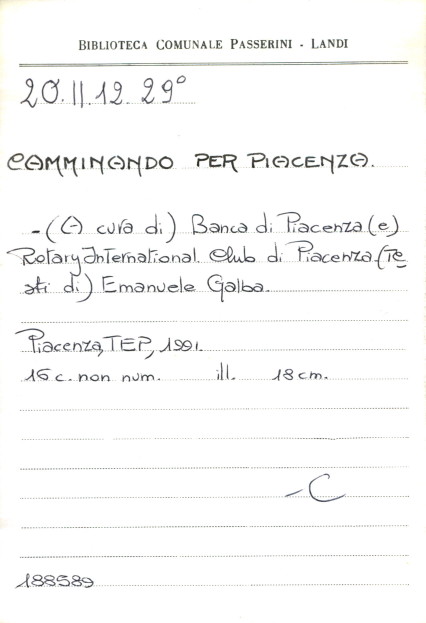 BIBLIOTECA COMUNALE PASSERINI - LANDI
20.II.12.29°
CAMMINANDO PER PIACENZA.
-(A cura di) Banca di Piacenza (e)
Rotary International Club di Piacenza. (Te
sti di) Emanuele Galba.
Piacenza, TEP, 1991.
16 c. non num. ill. 18 cm.
-C
188589